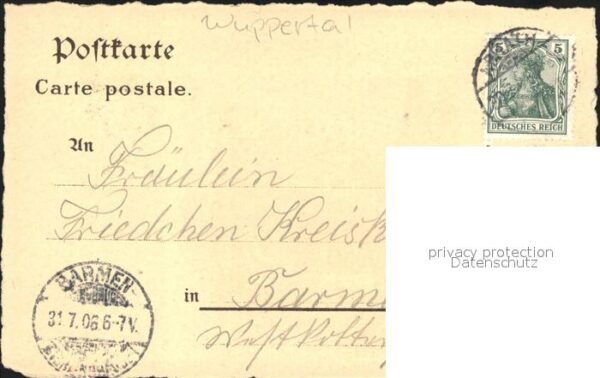 Wuppertal
Postkarte
Carte postale.
5
DEUTSCHES REICH
An
Fräulein
Friedchen Kreisk
privacy protection
Datenschutz
in Barme
BARMEN
31.7.06.6-7V.